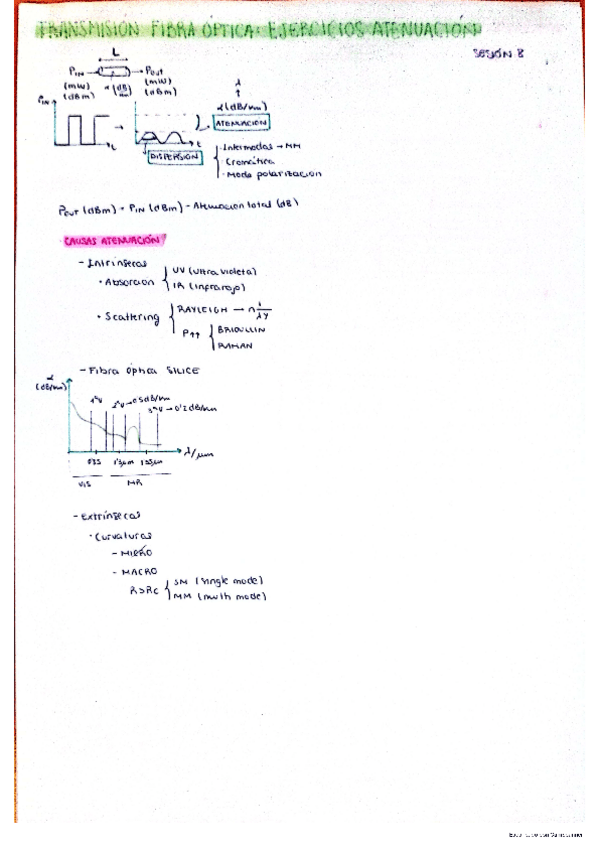 TRANSMISIÓN FIBRA ÓPTICA: EJERCICIOS ATENUACIÓN
SESIÓN 8
L
PIN → → Pout
(mW) α (dB/km) (mW)
(dBm) (dBm)
λ
α (dB/km)
PIN
ATENUACIÓN
t
t
DISPERSIÓN
· Intermodas → MM
· Cromática
· Modo polarización
Pout (dBm) = PIN (dBm) - Atenuación total (dB)
CAUSAS ATENUACIÓN
- Intrínsecas
· Absorción
UV (ultra violeta)
IR (infrarojo)
· Scattering
RAYLEIGH →
P↑↑
BRIOULLIN
RAMAN
- Fibra óptica SILICE
α
(dB/km)
1ªV
2ªV → 0'5 dB/km
3ªV → 0'2 dB/km
λ/μm
0'85 1'3μm 1'55μm
VIS
- Extrínsecas
· Curvaturas
- MICRO
- MACRO
R>Rc
SM (single mode)
MM (multi mode)